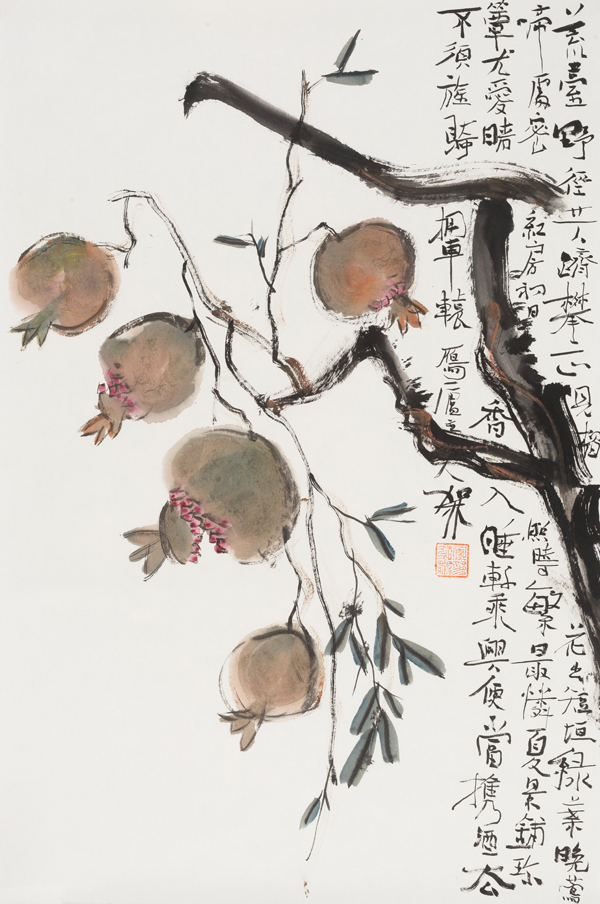 荒臺野徑共躋攀正見榴花出短垣綠葉晚鶯
啼處密紅房初日照時繁最憐夏景鋪珍
簟尤愛晴香入睡軒乘興便當攜酒去
不須旌騎擁車轅鴈廬主人